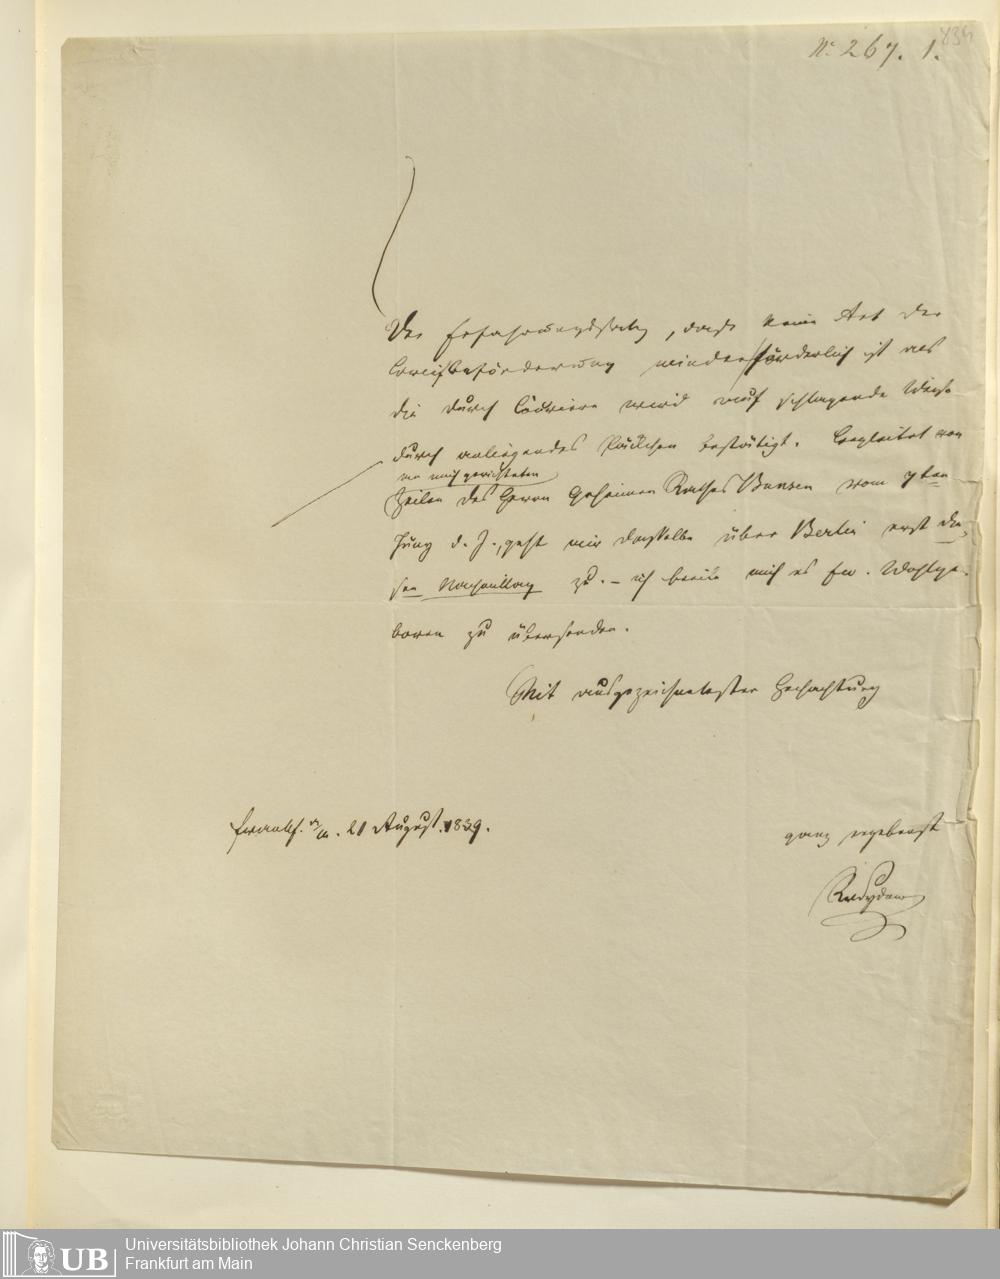 No 267. 1.
834
Der Erfahrungssatz, daß keine Art der
Briefbeförderung minder förderlich ist als
die durch Couriere wird auf schlagende Weise
durch anliegendes Päckchen bestätigt. Begleitet von
an mich gerichteten
Zeilen des Herrn Geheimen Rathes Bunsen vom 7ten
Juny d. J., geht mir dasselbe über Berlin erst die-
sen Nachmittag zu. – ich beeile mich es Ew. Wohlge-
boren zu übersenden.
Mit ausgezeichnetester Hochachtung
Frankf. a/M. 21 August. 1839.
ganz ergebenst
RvSydow
UB
Universitätsbibliothek Johann Christian Senckenberg
Frankfurt am Main